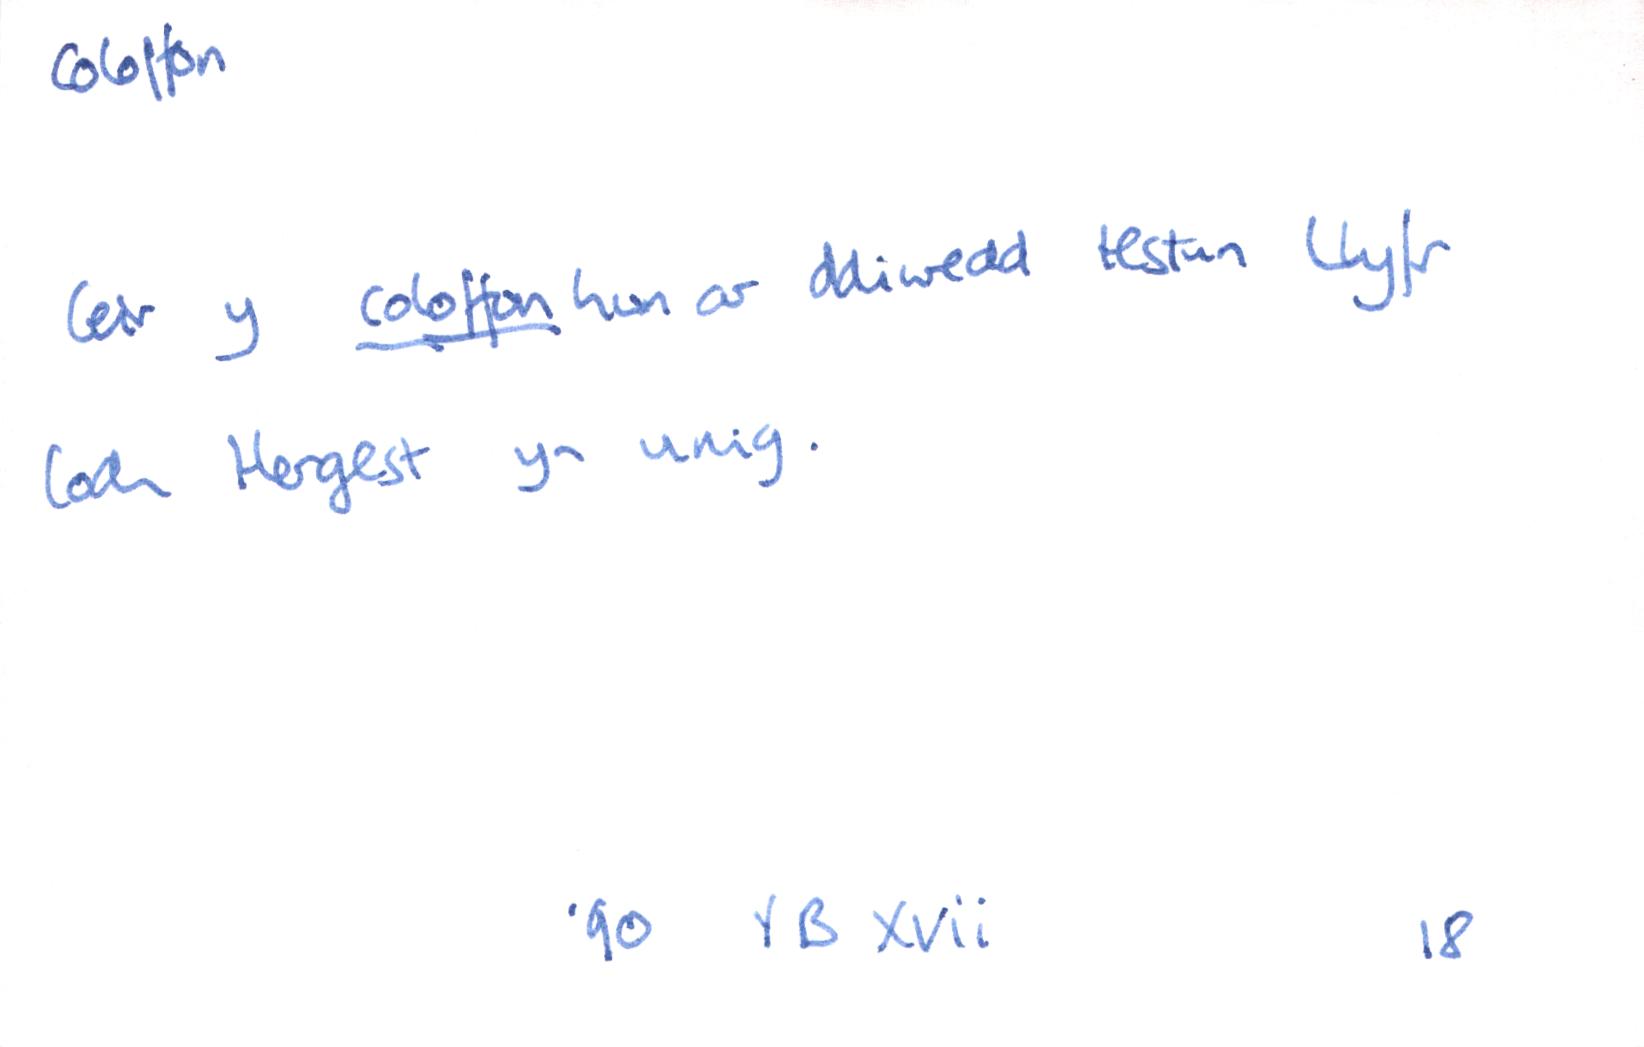 coloffon
Ceir y coloffon hwn ar ddiwedd testun Llyfr
Coch Hergest yn unig.
'90 YB XVii 18